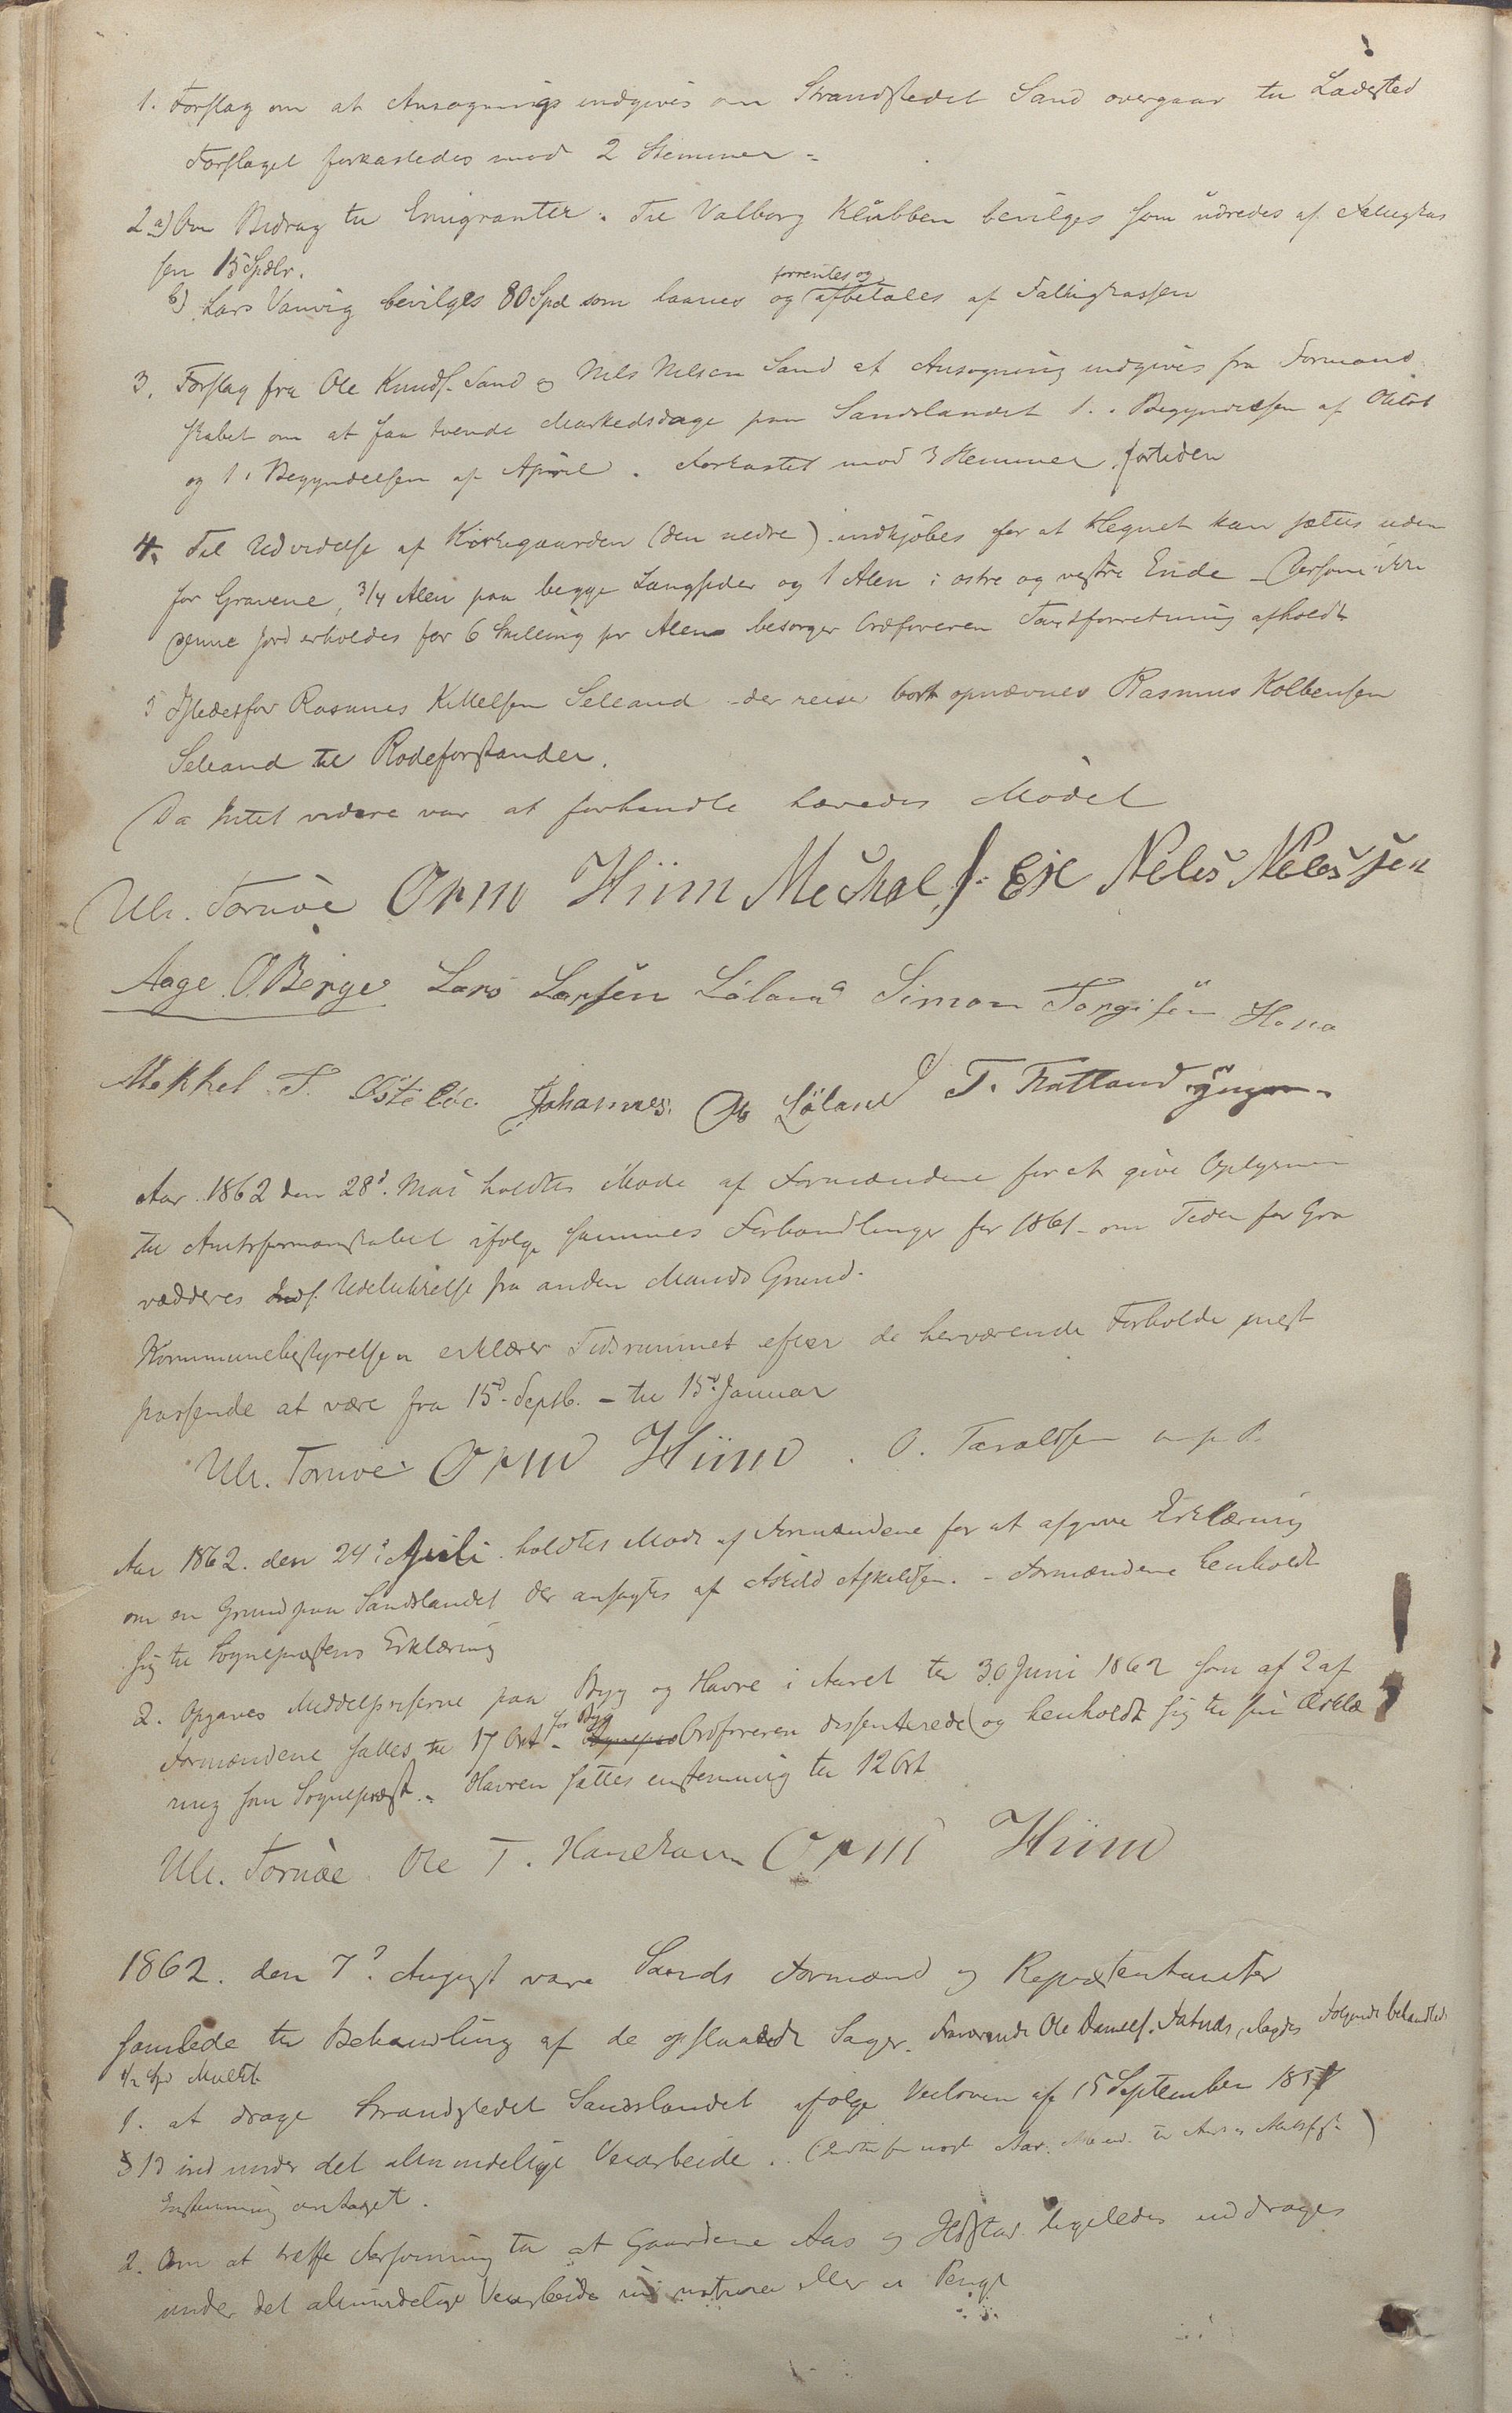 1. Forslag om at Ansøgnings indgives om Strandstedet Sand overgaar til Ladested
Forslaget forkastedes mod 2 Stemmer -
2 a) Om Bidrag til Emigranter. Til Valborg Klubben bevilges som udredes af Fattigkas
sen 15 Spdlr.
b) Lars Vanvig bevilges 80 Spd som laanes og forrentes og afbetales af Fattigkassen
3. Forslag fra Ole Knuds. Sand og Nils Nilsen Sand at Ansøgning indgives fra Formand
skabet om at faa tvende Markedsdage paa Sandslandet 1 i Begyndelsen af Oktob
og 1 i Begyndelsen af April. Forkastet mod 3 Stemmer fortiden
4. Til Udvidelse af Kirkegaarden (den nedre) indkjøbes for at Hegnet kan sættes uden
for Gravene, 3/4 Alen paa begge Langsider og 1 Alen i østre og vestre Ende - Dersom ikke
denne Jord erholdes for 6 Skilling pr Alen besørger Ordføreren Taxtforretning afholdt
5 Istedetfor Rasmus Kittelsen Seleand - der reiser bort opnævnes Rasmus Kolbensen
Seleand til Rodeforstander.
Da Intet videre var at forhandle hævedes Mødet
Ulr. Tornøe Orm Hiim Mechal J. Eie Neles Nelessen
Aage O Berge Lars Larsen Løland Simon Torgisen
Mekkel T. Johannes Løland T. Fatland
Aar 1862 den 28d. Mai holdtes Møde af Formændene for at give Oplysning
til Amtsformandskabet ifølge sammes Forhandlinger for 1861 - om Tiden for Gra
vædderes Udelukkelse fra anden Mands Grund.
Kommunebestyrelsen erklærer Tidsrummet efter de herværende Forholde mest
passende at være fra 15d. Septb. - til 15d. Januar
Ulr. Tornøe Orm Hiim . O. Taraldsen m. p. P.
Aar 1862. den 24d. Juli holdtes Møde af Formændene for at afgive Erklæring
om en Grund paa Sandslandet der ansøgtes af Askild Askildsen. - Formændene henholdt
sig til Sognepræstens Erklæring
2. Opgaves Middelpriserne paa Byg og Havre i Aaret til 30 Juni 1862 som af 2 af
Formændene sattes til 17 Ort - for Byg Ordføreren dissenterede og henholdt sig til sin Erklæ
ring som Sognepræst. - Havren sattes enstemmig til 12 Ort
Ulr. Tornøe Ole T. Orm Hiim
1862. den 7d. August vare Sands Formænd og Repræsentanter
samlede til Behandling af de opslaaede Sager. Fraværende Ole Daniels. Følgende behandledes
1/2 Spd Mulkt
1. at drage Strandstedet Sandslandet ifølge Veiloven af 15 September 1851
§ 13 ind under det almindelige Veiarbeide.
Enstemmig antaget.
2. Om at træffe Forføining til at Gaardene Aas og ligeledes inddrages
under det almindelige Veiarbeide in natura eller i Penge